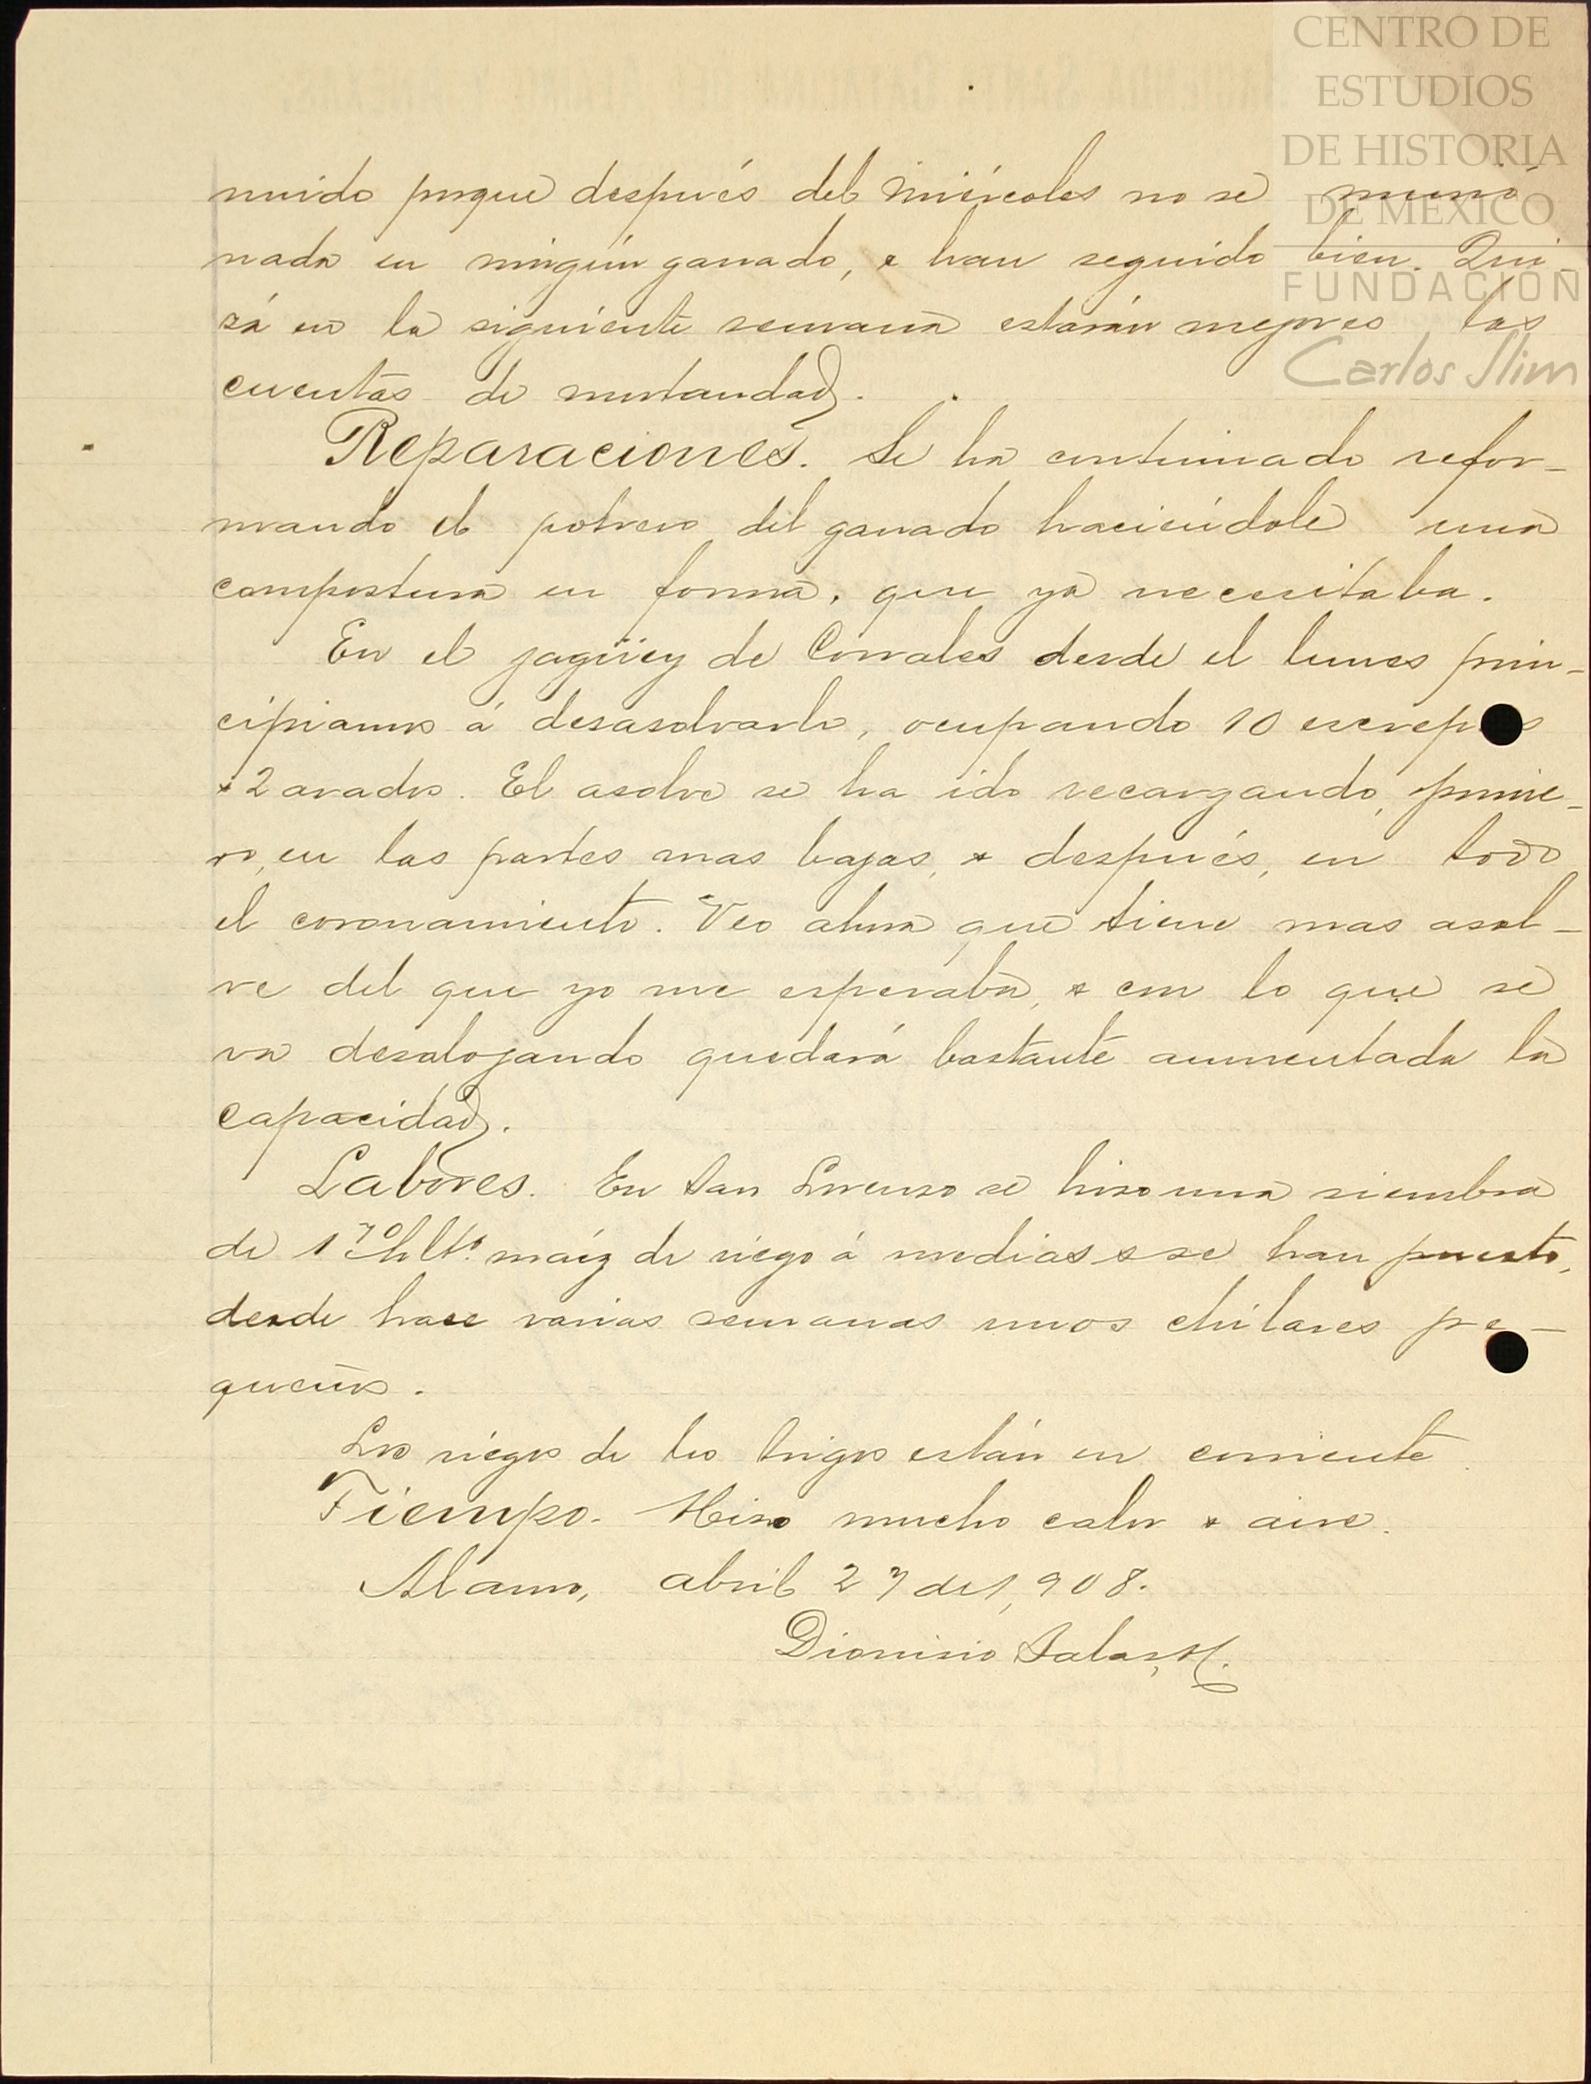 CENTRO DE
ESTUDIOS
DE HISTORIA
DE MEXICO
FUNDACIÓN
Carlos Slim
nuido porque después del miércoles no se murió
nada en ningún ganado, & han seguido bien. Qui-
zá en la siguiente semana estarán mejores las
cuentas de mortandad.
Reparaciones. Se ha continuado refor-
mando el potrero del ganado haciéndole una
compostura en forma, que ya necesitaba.
En el jagüey de Corrales desde el lunes prin-
cipiamos á desasolvarlo, ocupando 10 escrepas
& 2 arados. El asolve se ha ido recargando, prime-
ro, en las partes mas bajas, & después, en todo
el coronamiento. Veo ahora que tiene mas asol-
ve del que yo me esperaba, & con lo que se
va desalojando quedará bastante aumentada la
capacidad.
Labores. En San Lorenzo se hizo una siembra
de 1 70 hlts. maíz de riego á medias & se han puesto,
desde hace varias semanas unos chilares pe-
queños.
Los riegos de los trigos están en corriente.
Tiempo. Hizo mucho calor & aire.
Alamo, abril 27 de 1,908.
Dionisio Salas H.